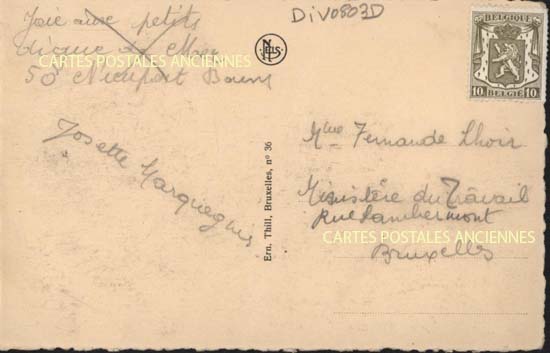 Joie aux petits
Digue de Mer
50 Nieuport Bains
CARTES POSTALES ANCIENNES
Josette
DIV0803D
NELS
Ern. Thill, Bruxelles, nº 36
BELGIQUE
10 BELGIE 10
Mlle Fernande Lhoir
Ministère du Travail
Rue Lambermont
CARTES POSTALES ANCIENNES
Bruxelles